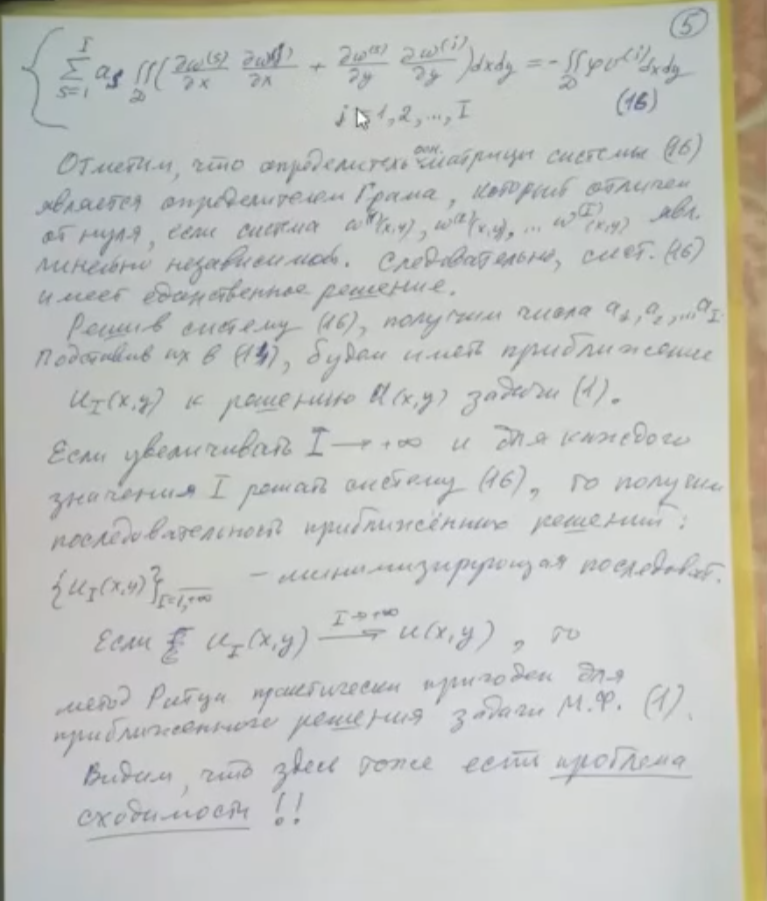 5
∑_{s=1}^{I} a_s ∬_D (∂ω^(s)/∂x ∂ω^(i)/∂x + ∂ω^(s)/∂y ∂ω^(i)/∂y) dxdy = -∬_D φ ω^(i) dxdy
i = 1, 2, ..., I (16)
Отметим, что определитель осн. матрицы системы (16)
является определителем Грама, который отличен
от нуля, если система ω^(1)(x,y), ω^(2)(x,y), ... ω^(I)(x,y) явл.
линейно независимой. Следовательно, сист. (16)
имеет единственное решение.
Решив систему (16), получим числа a_1, a_2, ... a_I.
Подставив их в (14), будем иметь приближение
u_I(x,y) к решению u(x,y) задачи (1).
Если увеличивать I → +∞ и для каждого
значения I решать систему (16), то получим
последовательность приближённых решений:
{u_I(x,y)}_{I=1,+∞} – минимизирующая последоват.
Если u_I(x,y) I→+∞ → u(x,y), то
метод Ритца практически пригоден для
приближенного решения задачи М.Ф. (1).
Видим, что здесь тоже есть проблема
сходимости !!